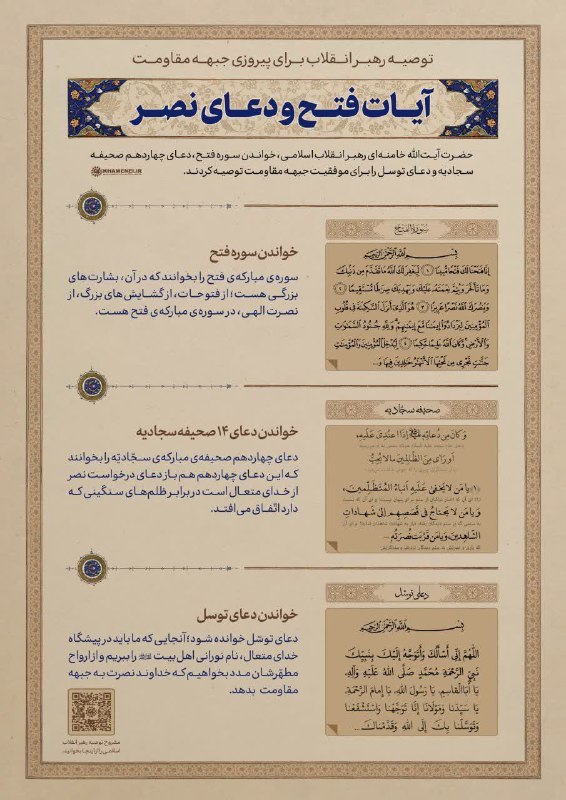 توصیه رهبر انقلاب برای پیروزی جبهه مقاومت
آیات فتح و دعای نصر
حضرت آیت‌الله خامنه‌ای رهبر انقلاب اسلامی، خواندن سوره فتح، دعای چهاردهم صحیفه
سجادیه و دعای توسل را برای موفقیت جبهه مقاومت توصیه کردند.
KHAMENEI.IR
سورة الفتح
بسم الله الرحمن الرحیم
إنا فتحنا لك فتحا مبينا ١ ليغفر لك الله ما تقدم من ذنبك
وما تأخر ويتم نعمته عليك ويهديك صراطا مستقيما ٢
وينصرك الله نصرا عزيزا ٣ هو الذي أنزل السكينة في قلوب
المؤمنين ليزدادوا إيمنا مع إيمنهم ولله جنود السموت
والأرض وكان الله عليما حكيما ٤ ليدخل المؤمنين والمؤمنت
جنت تجري من تحتها الأنهر خلدين فيها و...
خواندن سوره فتح
سوره‌ی مبارکه‌ی فتح را بخوانند که در آن، بشارت‌های
بزرگی هست؛ از فتوحات، از گشایش‌های بزرگ، از
نصرت الهی، در سوره‌ی مبارکه‌ی فتح هست.
صحیفه سجادیه
وكان من دعائه إذا اعتدي عليه،
أو رأى من الظالمين ما لا يحب
«۱» يا من لا يخفى عليه أنباء المتظلمين،
و يا من لا يحتاج في قصصهم إلى شهادات
الشاهدين، و يا من قربت نصرته ...
خواندن دعای ۱۴ صحیفه سجادیه
دعای چهاردهم صحیفه‌ی مبارکه‌ی سجّادیّه را بخوانند
که این دعای چهاردهم هم باز دعای درخواست نصر
از خدای متعال است در برابر ظلم‌های سنگینی که
دارد اتّفاق می‌افتد.
دعای توسل
بسم الله الرحمن الرحیم
اللهم إني أسألك و أتوجه إليك بنبيك
نبي الرحمة محمد صلى الله عليه و آله،
يا أبا القاسم، يا رسول الله، يا إمام الرحمة،
يا سيدنا و مولانا إنا توجهنا و استشفعنا
و توسلنا بك إلى الله و قدمناك ...
خواندن دعای توسل
دعای توسّل خوانده شود؛ آنجایی که ما باید در پیشگاه
خدای متعال، نام نورانی اهل‌بیت را ببریم و از ارواح
مطهّرشان مدد بخواهیم که خداوند نصرت به جبهه
مقاومت بدهد.
مشروح توصیه رهبر انقلاب
اسلامی را از اینجا بخوانید.